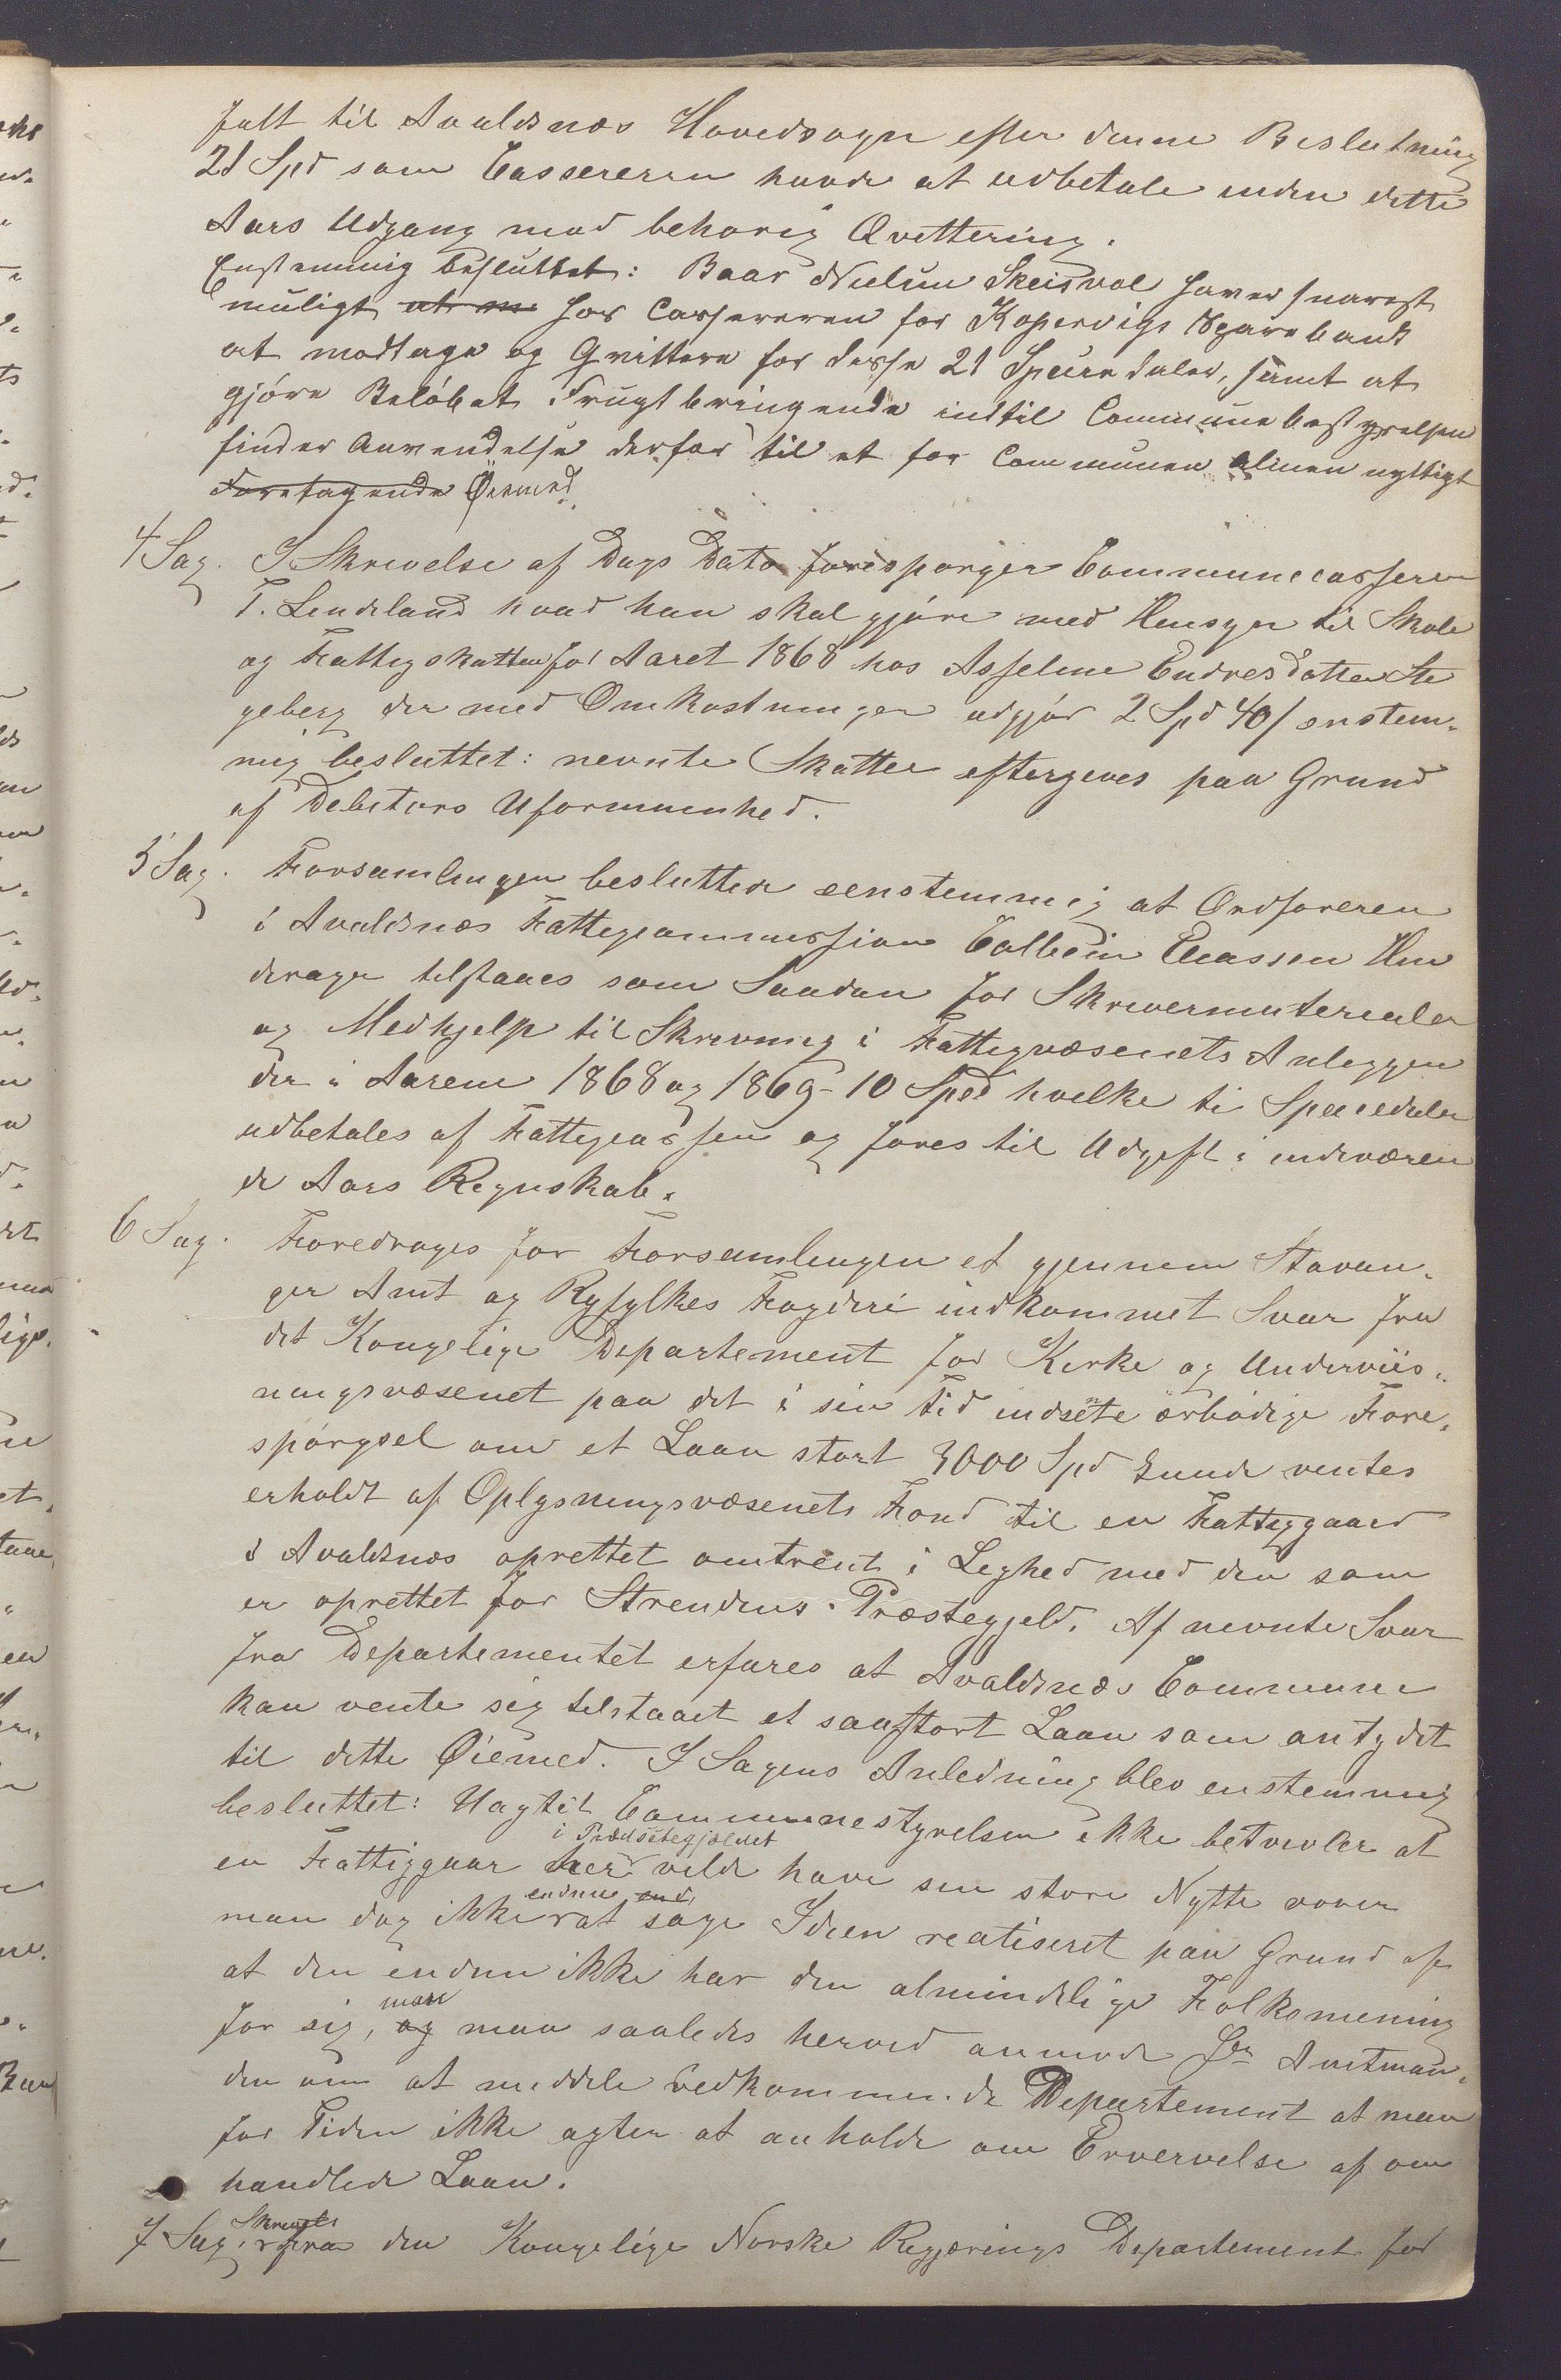 falt til Avaldsnæs Hovedsogn efter denne Beslutning
21 Spd som Cassereren havde at udbetale inden dette
Aars Udgang mod behorig Qvittering.
Enstemmig besluttet: Baar Nielsen Skeisvol haver snarest
muligt at m hos Cassereren for Kopervigs Sparebank
at modtage og Qvittere for disse 21 Speciedaler, samt at
gjöre Belöbet Frugtbringende indtil Communebestyrelsen
finder Anvendelse derfor til et for Communen almen nyttigt
Foretagende Öiemed.
4 Sag. I Skrivelse af Dags Dato forespørger Communecasserer
T. Lindeland hvad han skal gjöre med Hensyn til Skole
og Fattigskatten for Aaret 1868 hos Asseline Endresdatter Ste
geberg der med Omkostninger udgjör 2 Spd 40/ enstem-
mig besluttet: nevnte Skatter eftergives paa Grund
af Debitors Uformuenhed.
5 Sag. Forsamlingen besluttede eenstemmig at Ordføreren
i Avaldsnæs Fattigcommission Colbein Eliassen Hin
derager tilstaaes som Saadan for Skrivermaterialer
og Medhjelp til Skrivning i Fattigvæsenets Anleggen
der i Aarene 1868 og 1869 - 10 Spd hvilke ti Speciedaler
udbetales af Fattigcassen og føres til Udgift i indeværen
de Aars Regnskab.
6 Sag. Foredroges for Forsamlingen et gjennem Stavan-
ger Amt og Ryfylkes Fogderi indkommet Svar fra
det Kongelige Departement for Kirke og Underviis-
ningsvæsenet paa det i sin Tid indsente ærbödige Fore-
spörgsel om et Laan stort 3000 Spd kunde ventes
erholdt af Oplysningsvæsenets Fond til en Fattiggaard
i Avaldsnæs oprettet omtrent i Leghed med den som
er oprettet for Strendens Præstegjeld. Af nevnte Svar
fra Departementet erfares at Avaldsnæs Commune
kan vente sig tilstaaet et saa stort Laan som antydet
til dette Øiemed. I Sagens Anledning blev enstemmig
besluttet: Uagtet Communestyrelsen ikke betvivler at
i Prædstegjældet
en Fattiggaar her vilde have sin store Nytte vover
endnu end
man dog ikke at söge Ideen realiseret paa Grund af
at den endnu ikke har den almindelige Folkemening
man
for sig, og man saaledes herved anmode Hr Amtman-
den om at meddele Vedkommende Departement at man
for Tiden ikke agter at anholde om Erververlse af om
handlede Laan.
Skrivelse
7 Sag. fra den Kongelige Norske Regjerings Departement for